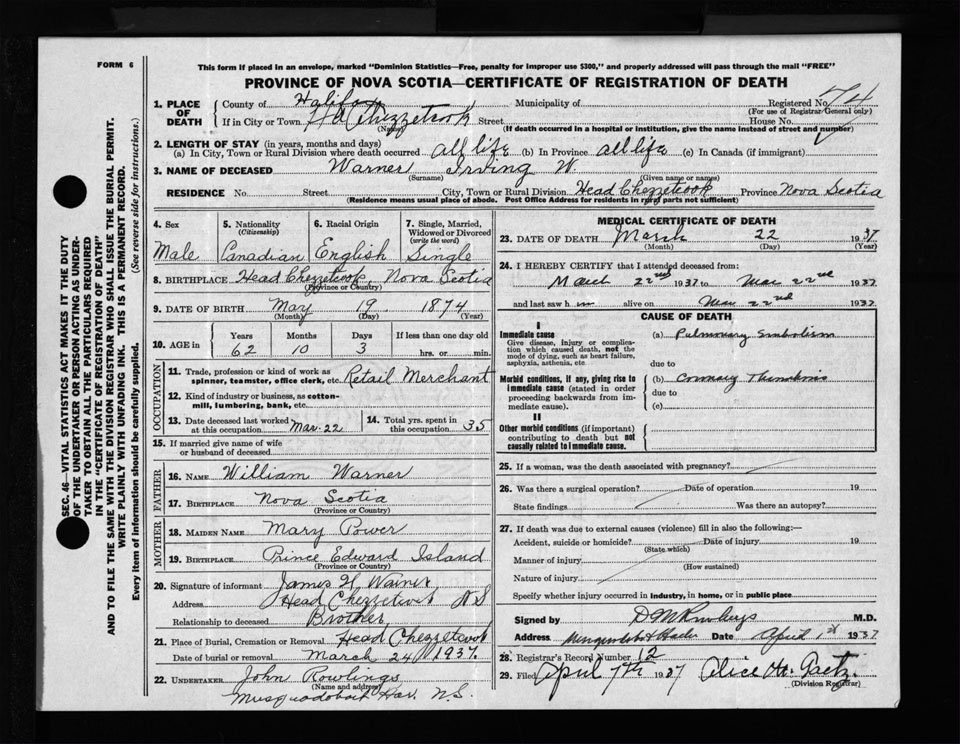 FORM 6
This form if placed in an envelope, marked "Dominion Statistics—Free, penalty for improper use $300," and properly addressed will pass through the mail "FREE"
PROVINCE OF NOVA SCOTIA—CERTIFICATE OF REGISTRATION OF DEATH
SEC. 46—VITAL STATISTICS ACT MAKES IT THE DUTY
OF THE UNDERTAKER OR PERSON ACTING AS UNDER-
TAKER TO OBTAIN ALL THE PARTICULARS REQUIRED
IN THE "CERTIFICATE OF REGISTRATION OF DEATH"
AND TO FILE THE SAME WITH THE DIVISION REGISTRAR WHO SHALL ISSUE THE BURIAL PERMIT.
WRITE PLAINLY WITH UNFADING INK. THIS IS A PERMANENT RECORD.
Every item of information should be carefully supplied. (See reverse side for instructions.)
1. PLACE OF DEATH
County of Halifax Municipality of Registered No.
(For use of Registrar General only)
If in City or Town Hd Chezzetcook Street House No.
(Name) (If death occurred in a hospital or institution, give the name instead of street and number)
2. LENGTH OF STAY (in years, months and days)
(a) In City, Town or Rural Division where death occurred all life (b) In Province all life (c) In Canada (if immigrant)
3. NAME OF DECEASED Warner Irving W.
(Surname) (Given name or names)
RESIDENCE No. Street City, Town or Rural Division Head Chezzetcook Province Nova Scotia
(Residence means usual place of abode. Post Office Address for residents in rural parts not sufficient)
4. Sex 5. Nationality 6. Racial Origin 7. Single, Married,
(Citizenship) Widowed or Divorced
(write the word)
Male Canadian English Single
8. BIRTHPLACE Head Chezzetcook, Nova Scotia
(Province or Country)
9. DATE OF BIRTH May 19 1874
(Month) (Day) (Year)
10. AGE in Years Months Days If less than one day old
62 10 3 hrs. or min.
OCCUPATION
11. Trade, profession or kind of work as
spinner, teamster, office clerk, etc. Retail Merchant
12. Kind of industry or business, as cotton-
mill, lumbering, bank, etc.
13. Date deceased last worked at this occupation Mar. 22 14. Total yrs. spent in this occupation 35
15. If married give name of wife
or husband of deceased
FATHER
16. NAME William Warner
17. BIRTHPLACE Nova Scotia
(Province or Country)
MOTHER
18. MAIDEN NAME Mary Power
19. BIRTHPLACE Prince Edward Island
(Province or Country)
20. Signature of informant James H Warner
Address Head Chezzetcook NS
Relationship to deceased Brother
21. Place of Burial, Cremation or Removal Head Chezzetcook
Date of burial or removal March 24 1937.
22. UNDERTAKER John Rowlings
(Name and address)
Musquodoboit Har. N.S.
MEDICAL CERTIFICATE OF DEATH
23. DATE OF DEATH March 22 1937
(Month) (Day) (Year)
24. I HEREBY CERTIFY that I attended deceased from:
March 22nd 1937 to Mar 22nd 1937
and last saw him alive on Mar 22nd 1937
CAUSE OF DEATH
I
Immediate cause (a) Pulmonary Embolism
Give disease, injury or complica-
tion which caused death, not the
mode of dying, such as heart failure,
asphyxia, asthenia, etc. due to
Morbid conditions, if any, giving rise to (b) Coronary Thrombosis
immediate cause (stated in order due to
proceeding backwards from im-
mediate cause). (c)
II
Other morbid conditions (if important)
contributing to death but not
causally related to immediate cause.
25. If a woman, was the death associated with pregnancy?
26. Was there a surgical operation? Date of operation 19
State findings Was there an autopsy?
27. If death was due to external causes (violence) fill in also the following:—
Accident, suicide or homicide? Date of injury 19
(State which)
Manner of injury
(How sustained)
Nature of injury
Specify whether injury occurred in industry, in home, or in public place
Signed by D M Rowlings M.D.
Address Date April 1st 1937
28. Registrar's Record Number 12
29. Filed April 7th 1937 Alice H. Gaetz.
(Division Registrar)